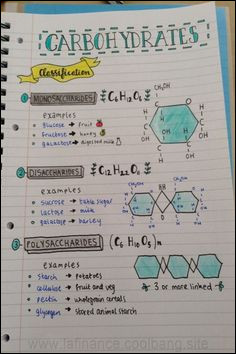 CARBOHYDRATES
Classification
1 MONOSACCHARIDES C6H12O6
examples
glucose → fruit
fructose → honey
galactose → digested milk
CH2OH
OH
2 DISACCHARIDES C12H22O11
examples
sucrose → table sugar
lactose → milk
galactose → barley
3 POLYSACCHARIDES (C6H10O5)n
examples
starch → potatoes
cellulose → fruit and veg
pectin → wholegrain cereals
glycogen → stored animal starch
3 or more linked
www.lafinance.coolbang.site